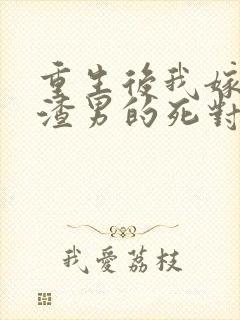 重生後我嫁
渣男的死對
我愛荔枝